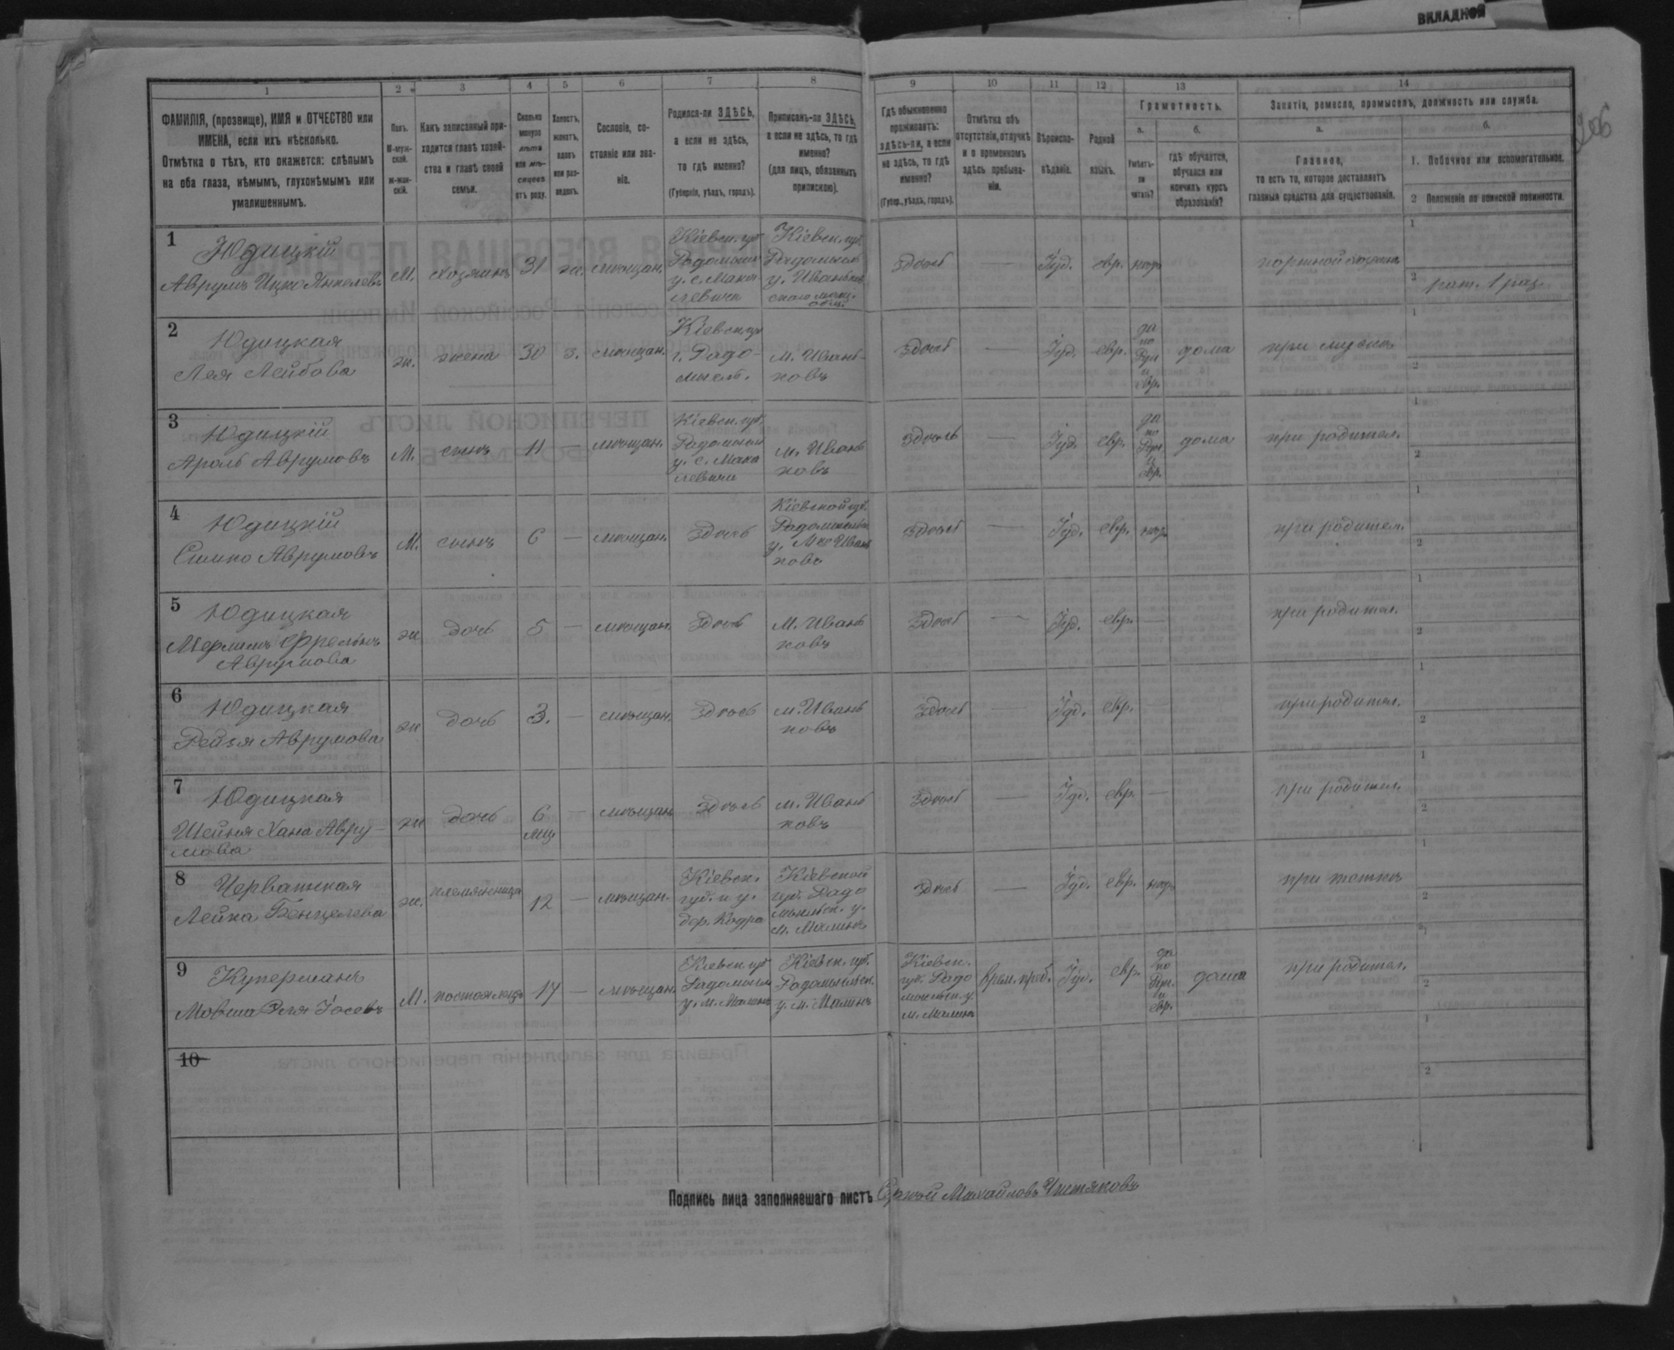 ВКЛАДНОЙ
206
1 2 3 4 5 6 7 8 9 10 11 12 13 14
ФАМИЛІЯ, (прозвище), ИМЯ и ОТЧЕСТВО или
ИМЕНА, если ихъ нѣсколько.
Отмѣтка о тѣхъ, кто окажется: слѣпымъ
на оба глаза, нѣмымъ, глухонѣмымъ или
умалишеннымъ.
Полъ.
М-муж-
ской.
Ж-жен-
скій.
Какъ записанный при-
ходится главѣ хозяй-
ства и главѣ своей
семьи.
Сколько
минуло
лѣтъ
или мѣ-
сяцевъ
отъ роду.
Холостъ,
женатъ,
вдовъ
или раз-
веденъ.
Сословіе, со-
стояніе или зва-
ніе.
Родился-ли ЗДѢСЬ,
а если не здѣсь,
то гдѣ именно?
(Губернія, уѣздъ, городъ).
Приписанъ-ли ЗДѢСЬ,
а если не здѣсь, то гдѣ
именно?
(для лицъ, обязанныхъ
припискою).
Гдѣ обыкновенно
проживаетъ:
здѣсь-ли, а если
не здѣсь, то гдѣ
именно?
(Губер., уѣздъ, городъ).
Отмѣтка объ
отсутствіи, отлучкѣ
и о временномъ
здѣсь пребыва-
ніи.
Вѣроиспо-
вѣданіе.
Родной
языкъ.
Грамотность.
а.
Умѣетъ-
ли
читать?
б.
гдѣ обучается,
обучался или
кончилъ курсъ
образованія?
Занятіе, ремесло, промыселъ, должность или служба.
а.
Главное,
то есть то, которое доставляетъ
главныя средства для существованія.
б.
1. Побочное или вспомогательное.
2 Положеніе по воинской повинности.
1 Юдицкій
Аврумъ Ицко Янкелевъ
М. хозяинъ 31 ж. мѣщан.
Кіевск. губ.
Радомысл.
у. с. Мака
левичи
Кіевск. губ.
Радомысл
у. Иванков
ского мѣщ.
общ.
здѣсь — Іуд. евр. нѣтъ портной хозяинъ
рат. 1 раз.
2 Юдицкая
Лея Лейбова
ж. жена 30 з. мѣщан.
Кіевск. губ
г. Радо-
мысль.
м. Иван-
ковъ
здѣсь — Іуд. евр.
да
по
Рус
и
евр.
дома при мужѣ
3 Юдицкій
Аронъ Аврумовъ
М. сынъ 11 — мѣщан.
Кіевск. губ.
Радомысл
у. с. Мака
левичи
м. Иван
ковъ
здѣсь — Іуд. евр.
да
по
Рус
и
евр.
дома при родител.
4 Юдицкій
Симко Аврумовъ
М. сынъ 6 — мѣщан. здѣсь
Кіевской губ.
Радомысльск
у. Мѣс Иван
ковъ
здѣсь — Іуд. евр. нѣтъ при родител.
5 Юдицкая
Аврумова
ж дочь 5 — мѣщан. здѣсь
м. Иван
ковъ
здѣсь — Іуд. евр. — при родител.
6 Юдицкая
Рейзя Аврумова
ж дочь 3. — мѣщан. здѣсь
м. Иван
ковъ
здѣсь — Іуд. евр. — при родител.
7 Юдицкая
Шейня Хана Авру-
мова
ж дочь 6
мѣц
— мѣщан здѣсь
м. Иван
ковъ
здѣсь — Іуд. евр. — при родител.
8
Лейка Бенцелева
ж. племянница 12 — мѣщан.
Кіевск.
губ. и у.
дер. Кодра
Кіевской
губ. Радо
мысльск. у.
м. Малинъ
здѣсь — Іуд. евр. нѣтъ при теткѣ
9 Куперманъ
Мовша Іосевъ
М. постоялецъ 17 — мѣщан
Кіевск. губ
Радомысл
у. м. Малинъ
Кіевск. губ.
Радомысльск.
у. м. Малинъ
Кіевск.
губ. Радо
мысльск. у.
м. Малинъ
Врем. преб. Іуд. евр.
да
по
Рус.
и
евр.
дома при родител.
10
Подпись лица заполнявшаго листъ Сергѣй Михайловъ Чистяковъ